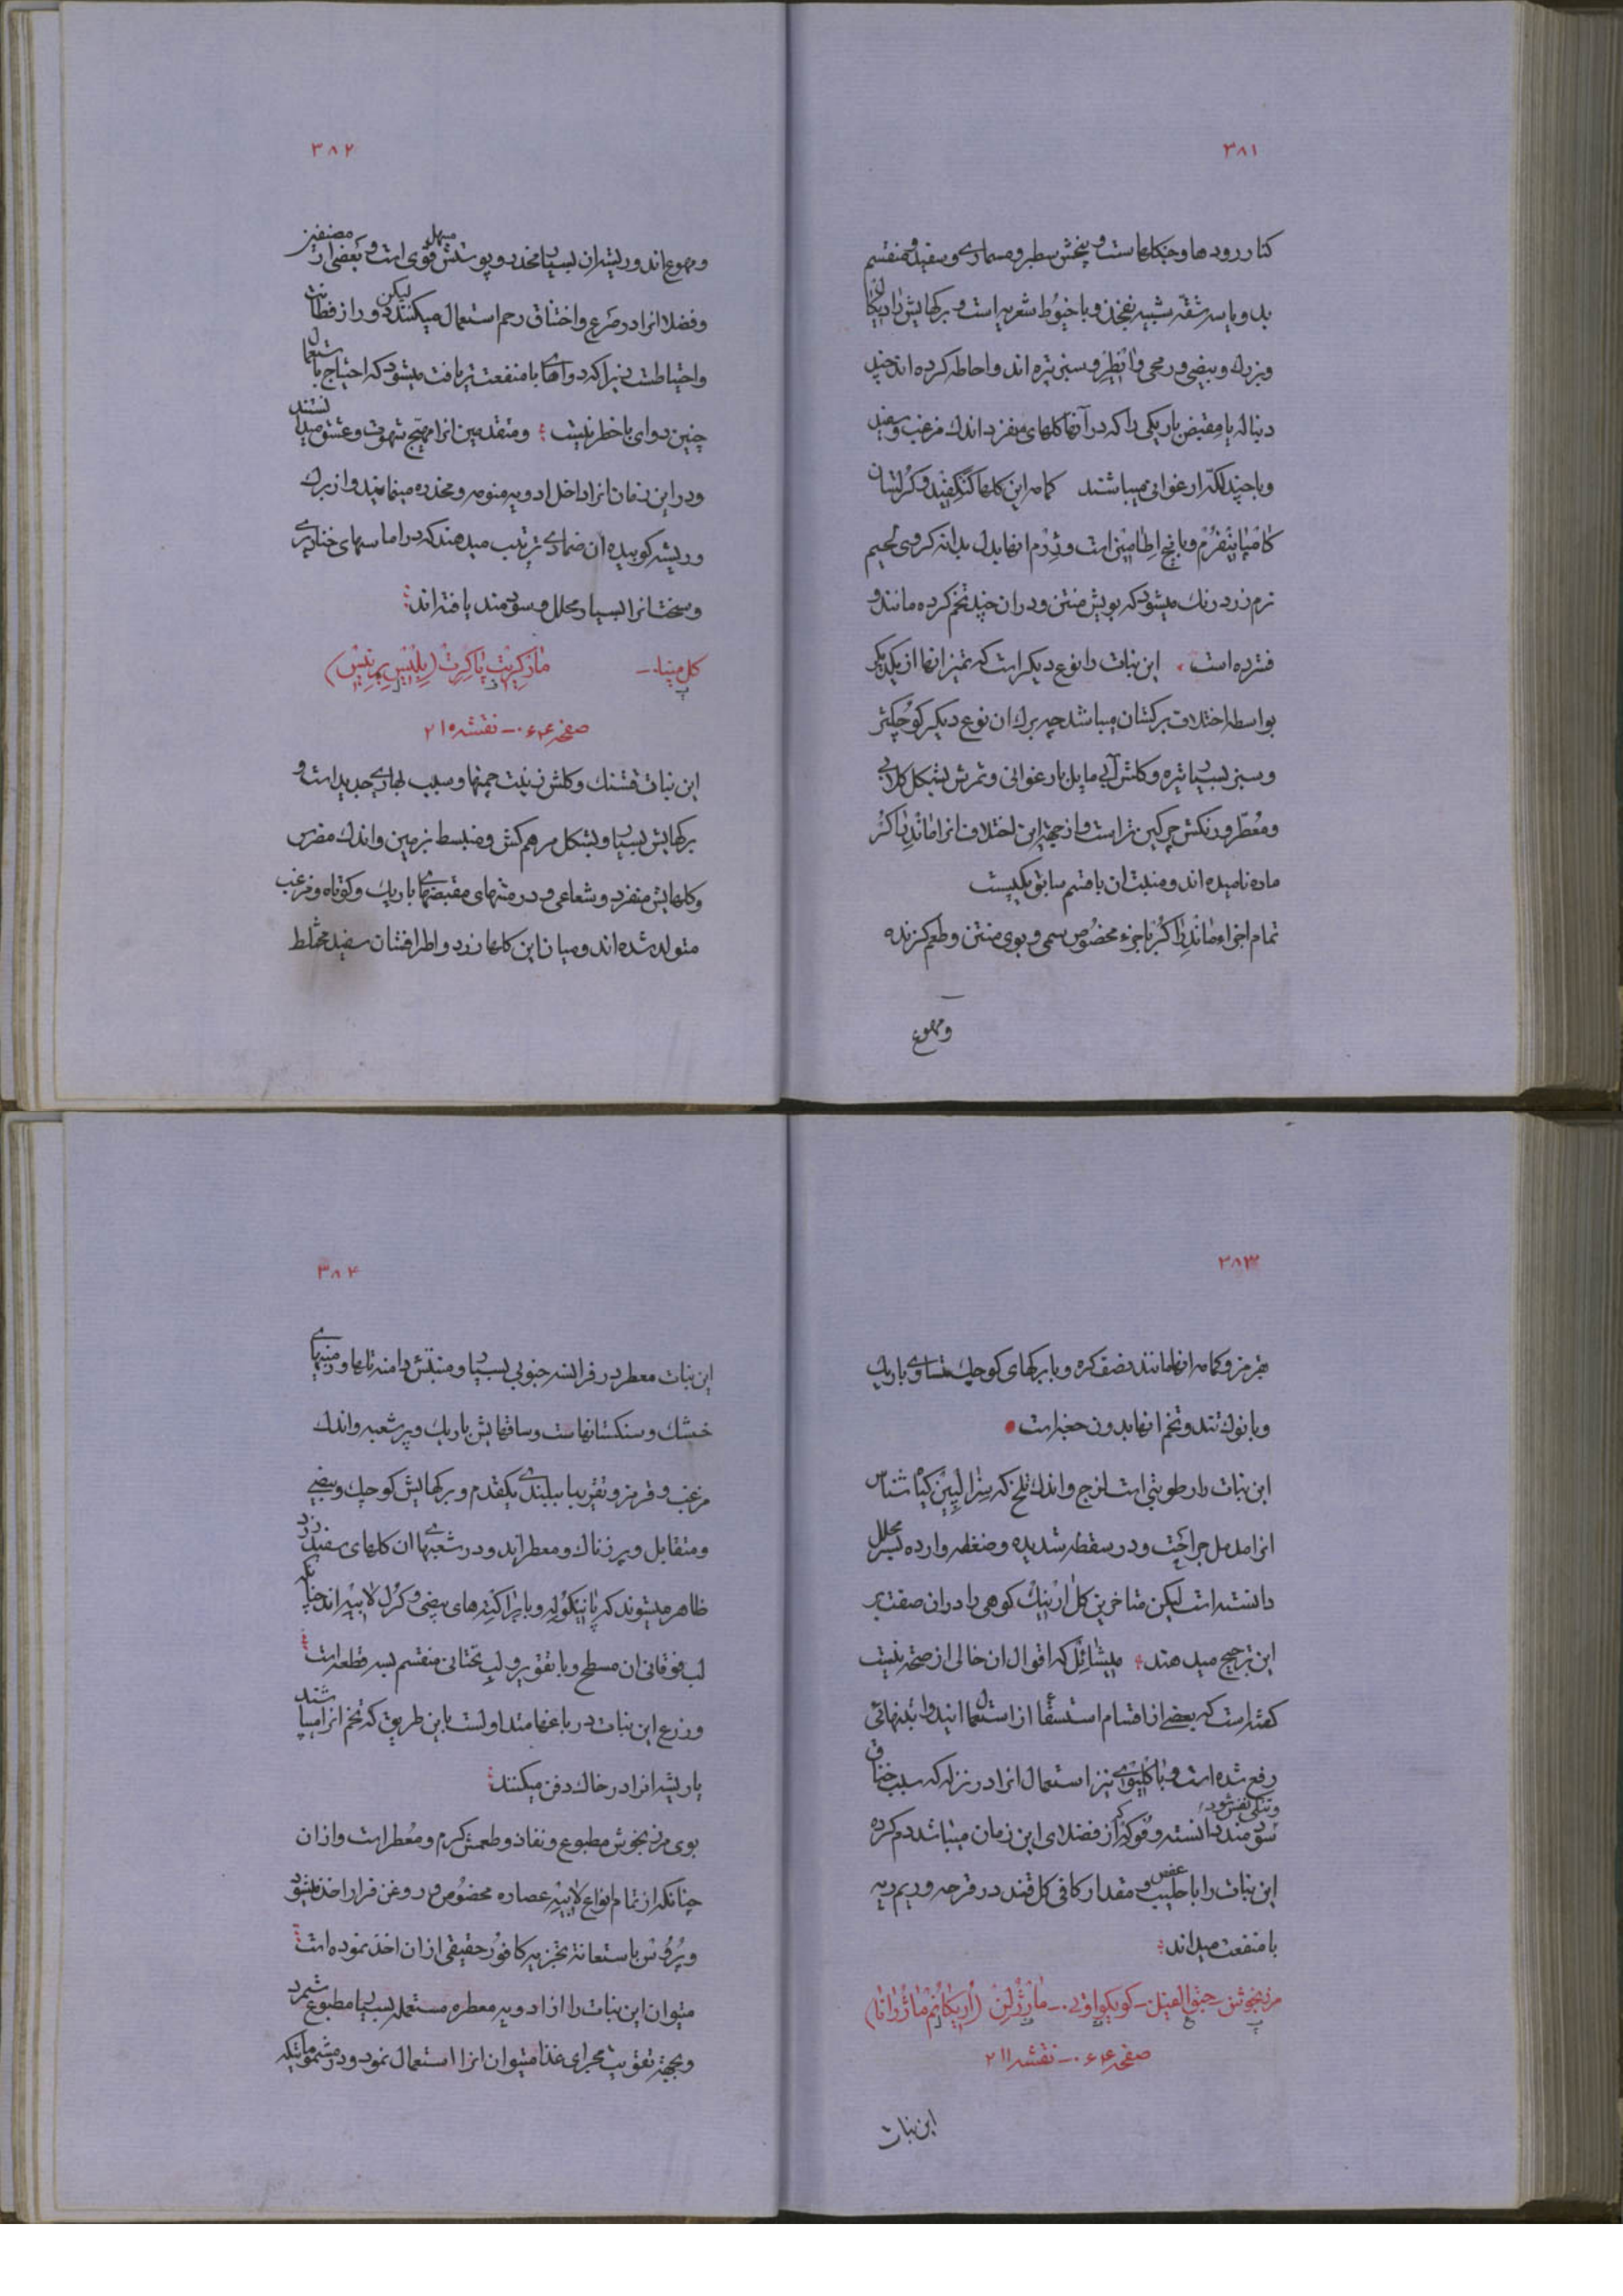 ۳۸۱
کنار رودها و جنکلهاست و بیخش سطبر و مسماری و سفید و منقسم
بدو یا سه شقه شبیه بفخذ و با خیوط شعریه است و برکهایش رادیکال
و بزرك و بیضی و رمحی و و سبز تیره اند و احاطه کرده اند چند
دنباله یا مقبض باریکی را که در آنها کلهای منفرد اندك مزغب و سفید
و با چند لکه ارغوانی میباشند کمامه این کلها و کرلشان
و با پنج است و انها بدل بدانه کروی لحیم
نرم زرد رنك میشود که بویش منتن و در ان چند تخم کرده مانند و
فشرده است این نبات را نوع دیکر است که تمیز انها از یکدیکر
بواسطه اختلاف برکشان میباشد چه برك ان نوع دیکر کوچکتر
و سبز بسیار تیره و کلش آبی مایل بارغوانی و ثمرش بشکل کلابی
و معطر و رنکش چرکین تر است و از جهة این اختلاف انرا ماندراکر
ماده نامیده اند و منبت ان با قسم سابق یکیست
تمام اجزاء ماندراکر با جزء مخصوص سمی و بوی منتن و طعم کزنده
و مهوع
۳۸۲
و مهوع اند و ریشه ان بسیار مخدر و پوستش مسهل قوی است و بعضی از مصنفین
و فضلا انرا در صرع و اختناق رحم استعمال میکنند لیکن دور از فطانت
و احتیاطست زیرا که دواهای با منفعت تر یافت میشود که احتیاج باستعمال
چنین دوای با خطر نیست و متقدمین انرا مهیج شهوت و عشق میدانستند
و در این زمان انرا داخل ادویه منومه و مخدره مینمایند و از برك
و ریشه کوبیده ان ضمادی ترتیب میدهند که در اماسهای خنازیری
و سخت انرا بسیار محلل و سودمند یافته اند
کل مینا ـ مارکریت پاکرت (بلیس پرنیس)
صفحه ۶۴۰ ـ نقشه ۲۱۰
این نبات قشنك و کلش زینت چمنها و سبب بهاری جدید است و
برکهایش بسیار و بشکل مرهم کش و منبسط بزمین و اندك مضرس
و کلهایش منفرد و شعاعی و در منتهای مقبضهای باریك و کوتاه و مزغب
متولد شده اند و میان این کلها زرد و اطرافشان سفید مختلط
۳۸۳
بقرمز و کمامه انها مانند نصف کره و با برکهای کوچك متساوی باریك
و با نوك تند و تخم انها بدون جغه است
این نبات را رطوبتی است لزج و اندك تلخ که کیاه شناس
انرا مدمل جراحت و در سقطه شدیده و ضغطه وارده بسر محلل
دانسته است لیکن متاخرین کل ارنیك کوهی را در ان صفت بر
این ترجیح میدهند میشائل که اقوال ان خالی از صحة نیست
کفته است که بعضی از اقسام استسقا از استعمال این دوا بتنهائی
رفع شده است و نیز استعمال انرا در نزله که سبب خناق
و تنکی نفس شود
سودمند دانسته و فوکه که از فضلای این زمان میباشد دم کرده
این نبات را با حلیب و عفص و مقدار کافی کل قند در قرحه و ریم ریه
با منفعت میداند
مرزنجوش ـ حبق الفیل ـ ـ مارژلن (اریکانم ماژرانا)
صفحه ۶۴۰ ـ نقشه ۲۱۱
این نبات
۳۸۴
این نبات معطر در فرانسه جنوبی بسیار و منبتش دامنه تلها و زمینهای
خشك و سنکستانهاست و ساقهایش باریك و پر شعبه و اندك
مزغب و قرمز و تقریبا ببلندی یکقدم و برکهایش کوچك و بیضی
و متقابل و پرزناك و معطر اند و در شعبهای ان کلهای سفید زرد
ظاهر میشوند که پانیکوله و با براکته های بیضی و کرل لابیه اند چنانکه
لب فوقانی ان مسطح و با تقویر و لب تحتانی منقسم بسه قطعه است
و زرع این نبات در باغها متداولست باین طریق که تخم انرا میپاشند
یا ریشه انرا در خاك دفن میکنند
بوی مرزنجوش مطبوع و نفاذ و طعمش کرم و معطر است و از ان
چنانکه از تمام انواع لابیه عصاره مخصوص و روغن فرار اخذ میشود
و پروس باستعانة تجزیه کافور حقیقی از ان اخذ نموده است
میتوان این نبات را از ادویه معطره مستعمله بسیار مطبوع شمرد
و بجهة تقویت مجرای غذا میتوان انرا استعمال نمود و در